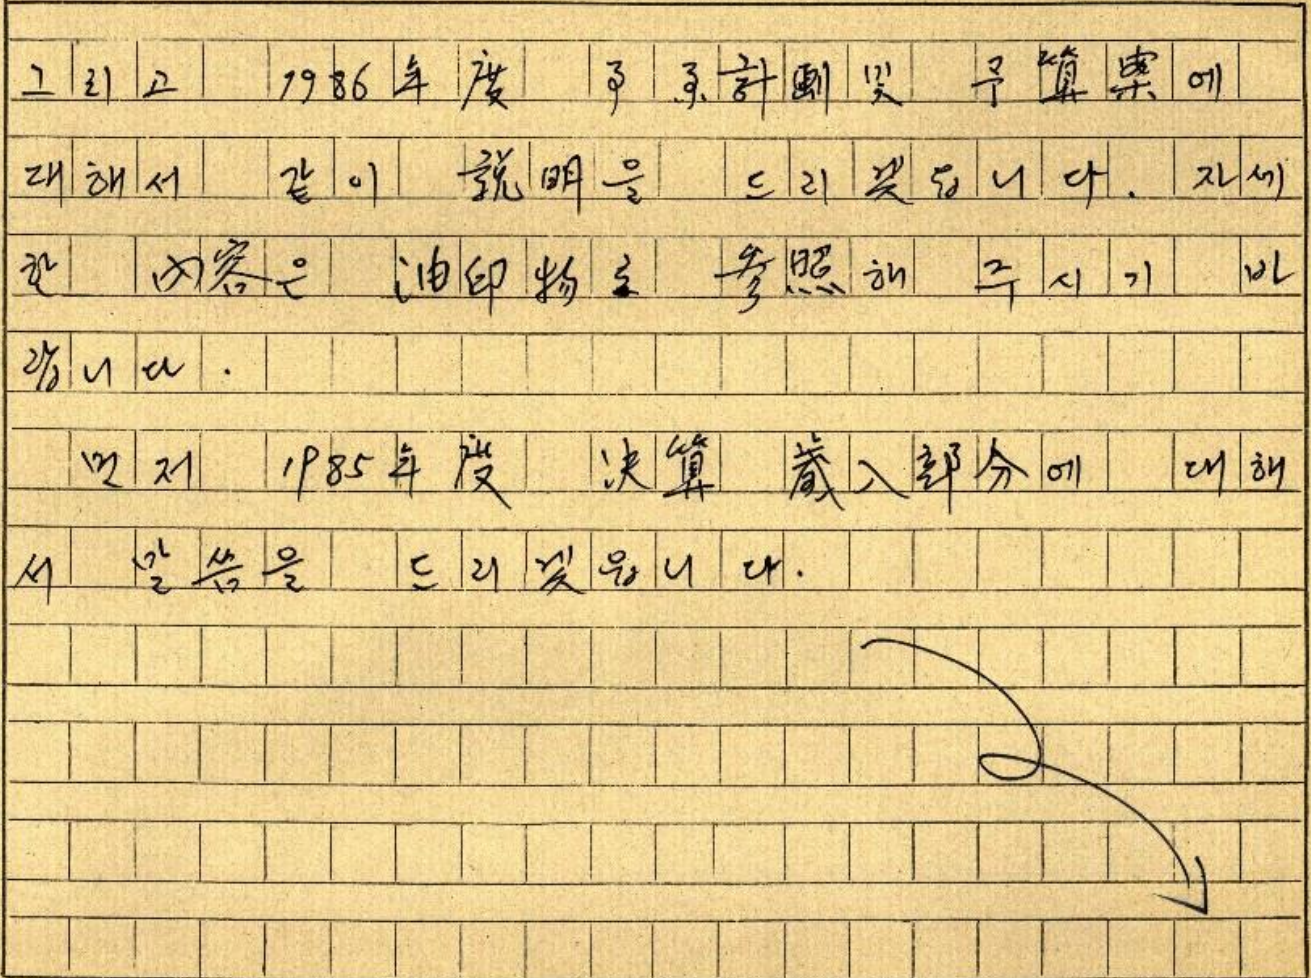 그리고 1986年度 事業計劃 및 予算案에
대해서 같이 説明을 드리겟읍니다. 자세
한 內容은 油印物로 参照해 주시기 바
랍니다.
먼저 1985年度 決算 歲入部分에 대해
서 말씀을 드리겟읍니다.